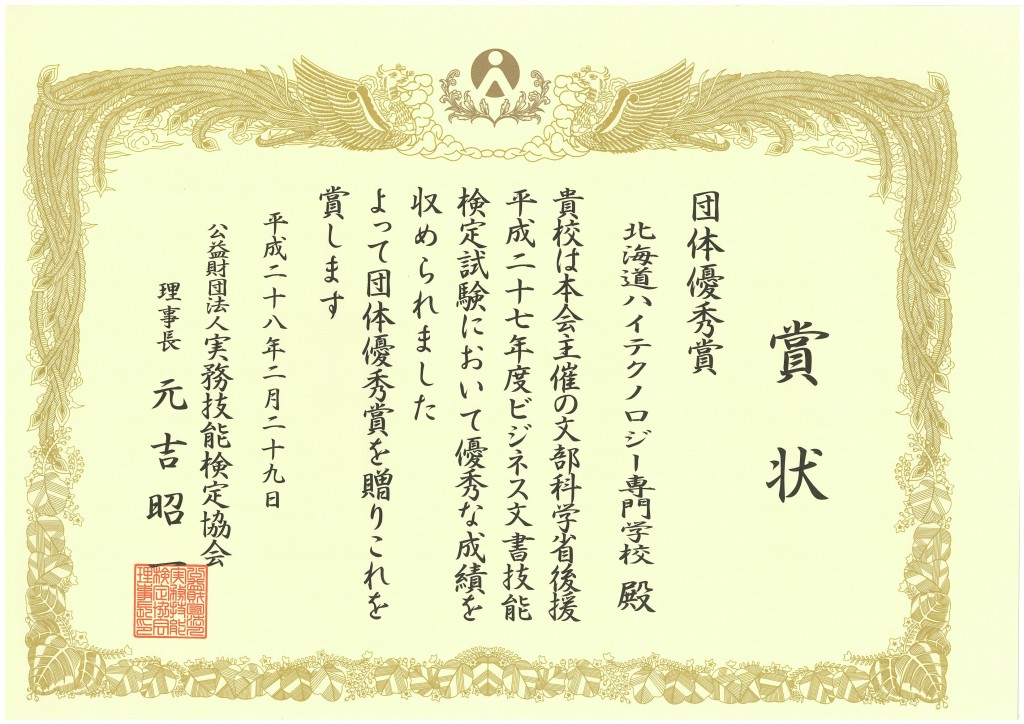 賞状
団体優秀賞
北海道ハイテクノロジー専門学校 殿
貴校は本会主催の文部科学省後援
平成二十七年度ビジネス文書技能
検定試験において優秀な成績を
収められました
よって団体優秀賞を贈りこれを
賞します
平成二十八年二月二十九日
公益財団法人実務技能検定協会
理事長 元吉昭一
公益財団法人
実務技能
検定協会
理事長印